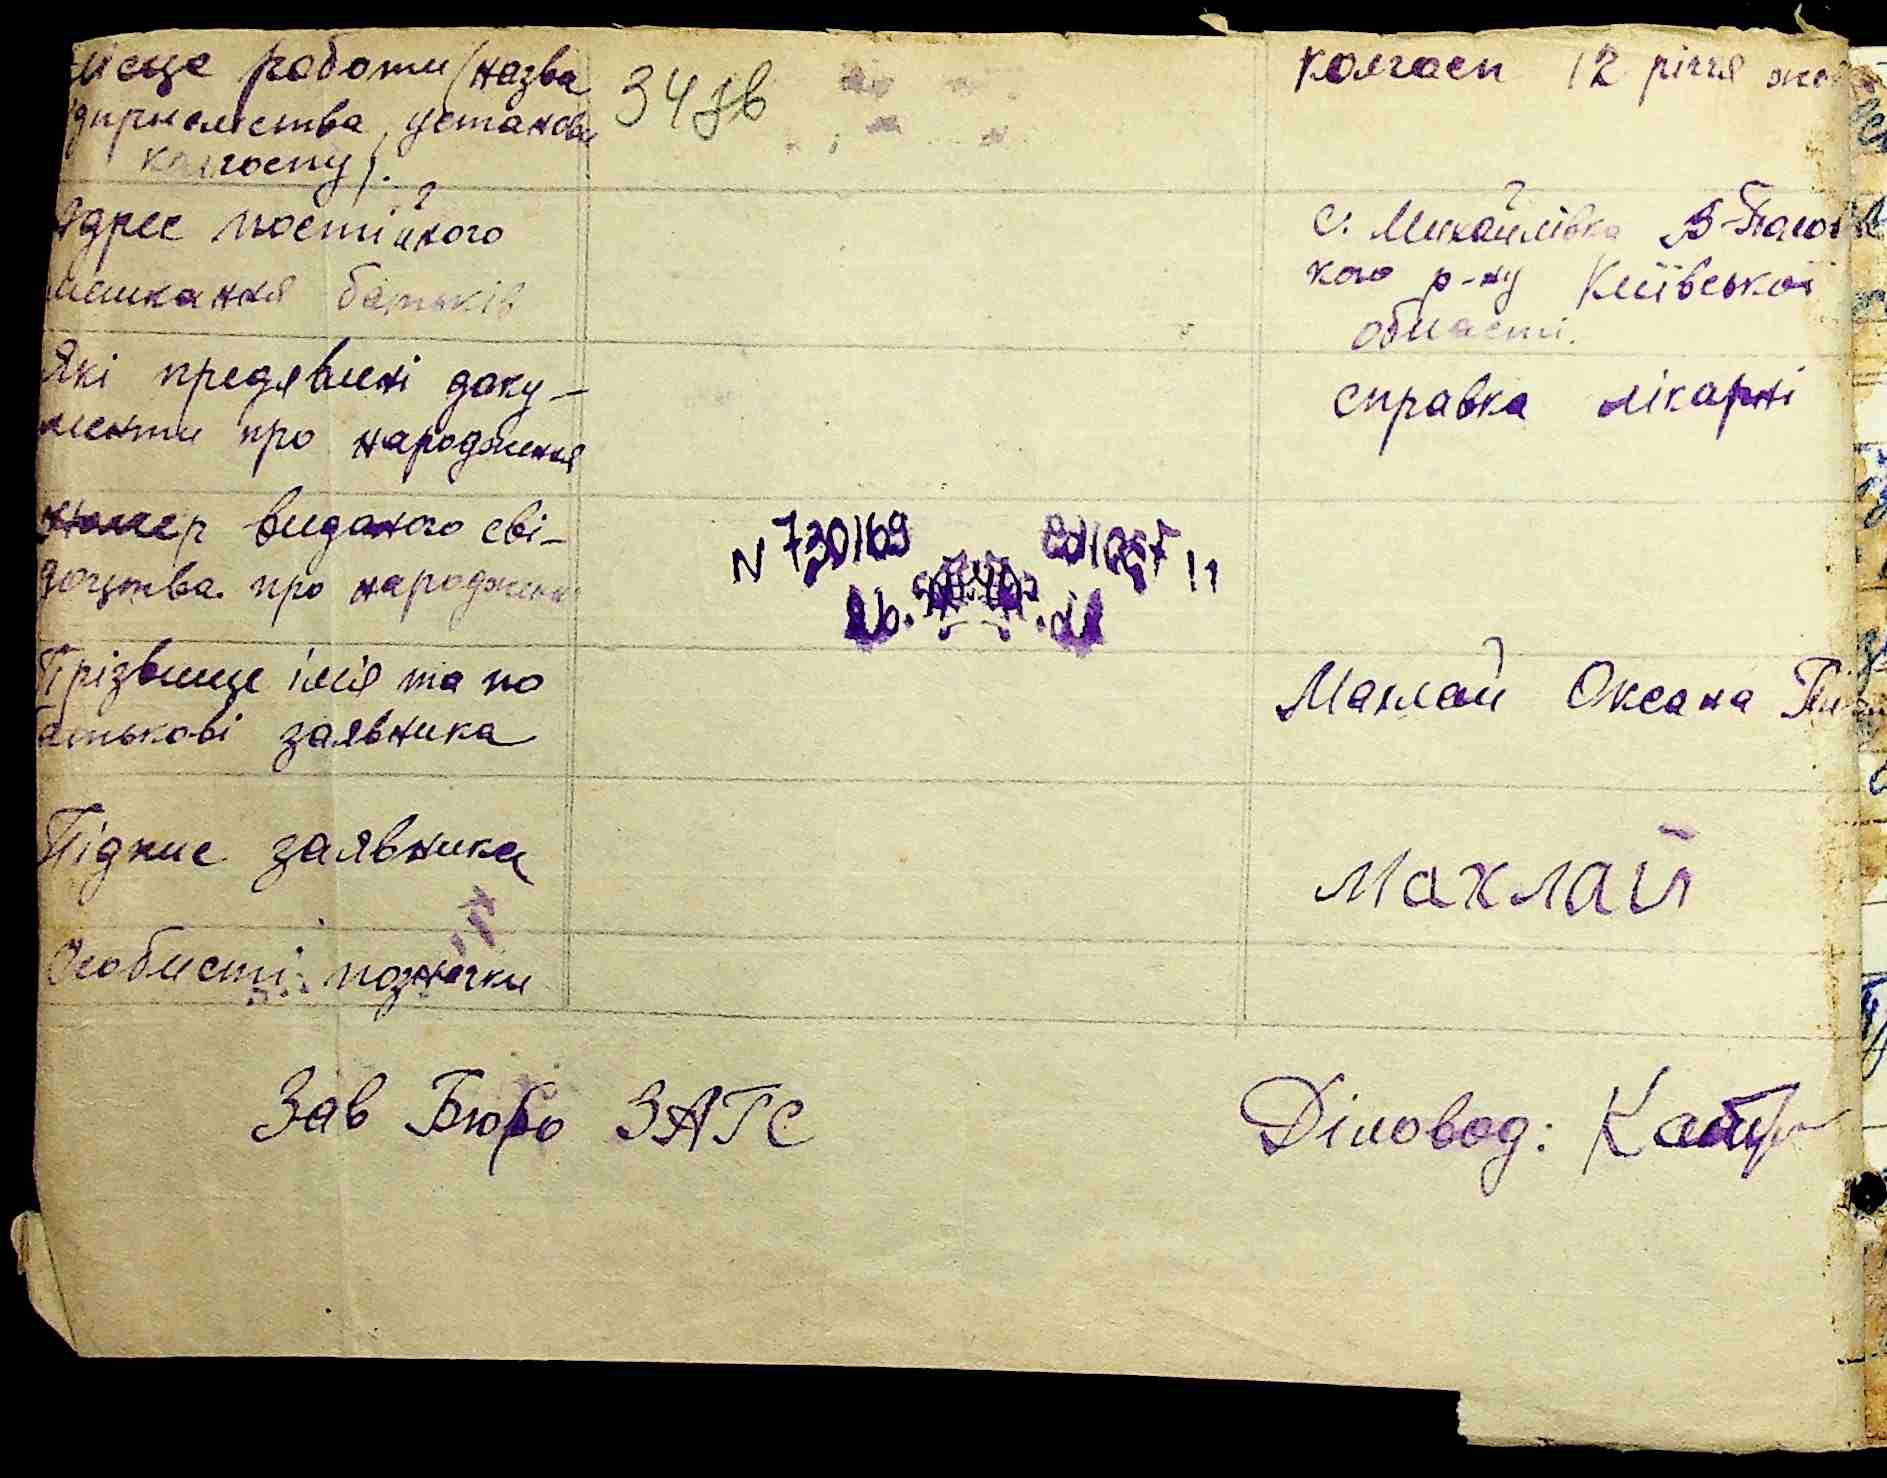 місце роботи (назва
дприємства, установи
колгоспу).
34зв
колгосп 12 річчя жов
Адрес постійного
мешкання батьків
с. Михайлівка
кого р-ну Київської
області.
Які предявлені доку-
менти про народження
справка лікарні
номер виданого сві-
доцтва про народжен
N 730169
Прізвище імя та по
батькові заявника
Махлай Оксана
Підпис заявника
Махлай
Особисті позначки
Зав Бюро ЗАГС
Діловод: